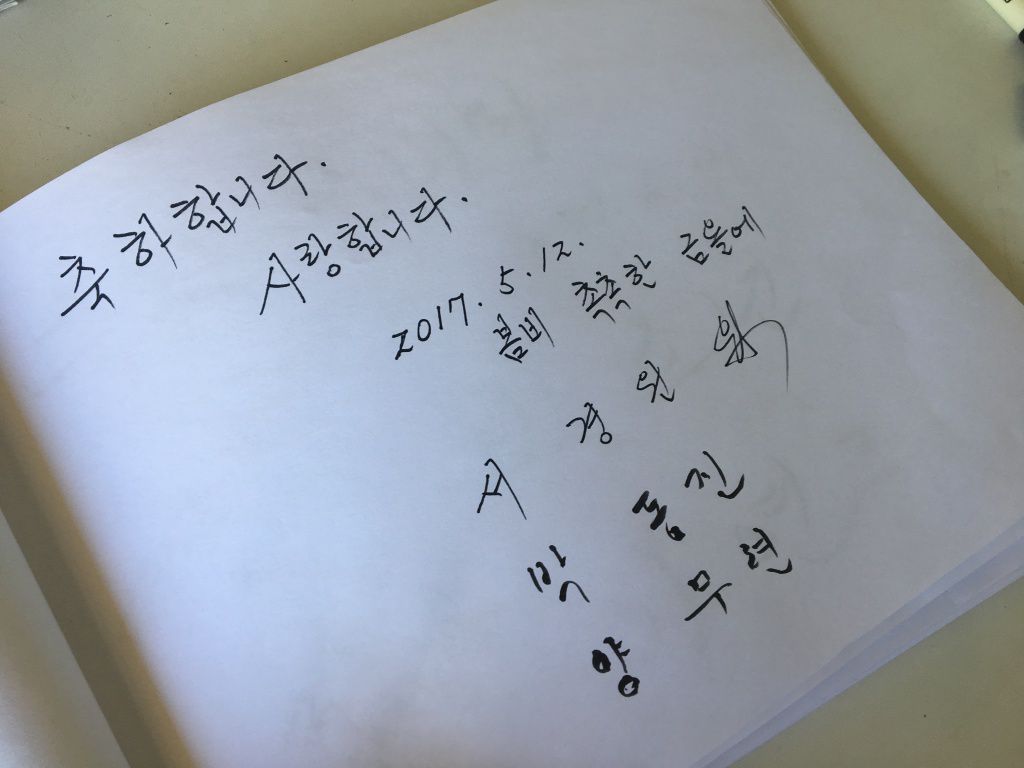 축하합니다.
사랑합니다.
2017. 5. 12.
봄비 촉촉한 금요일에
서 경원
박 동진
양 무연